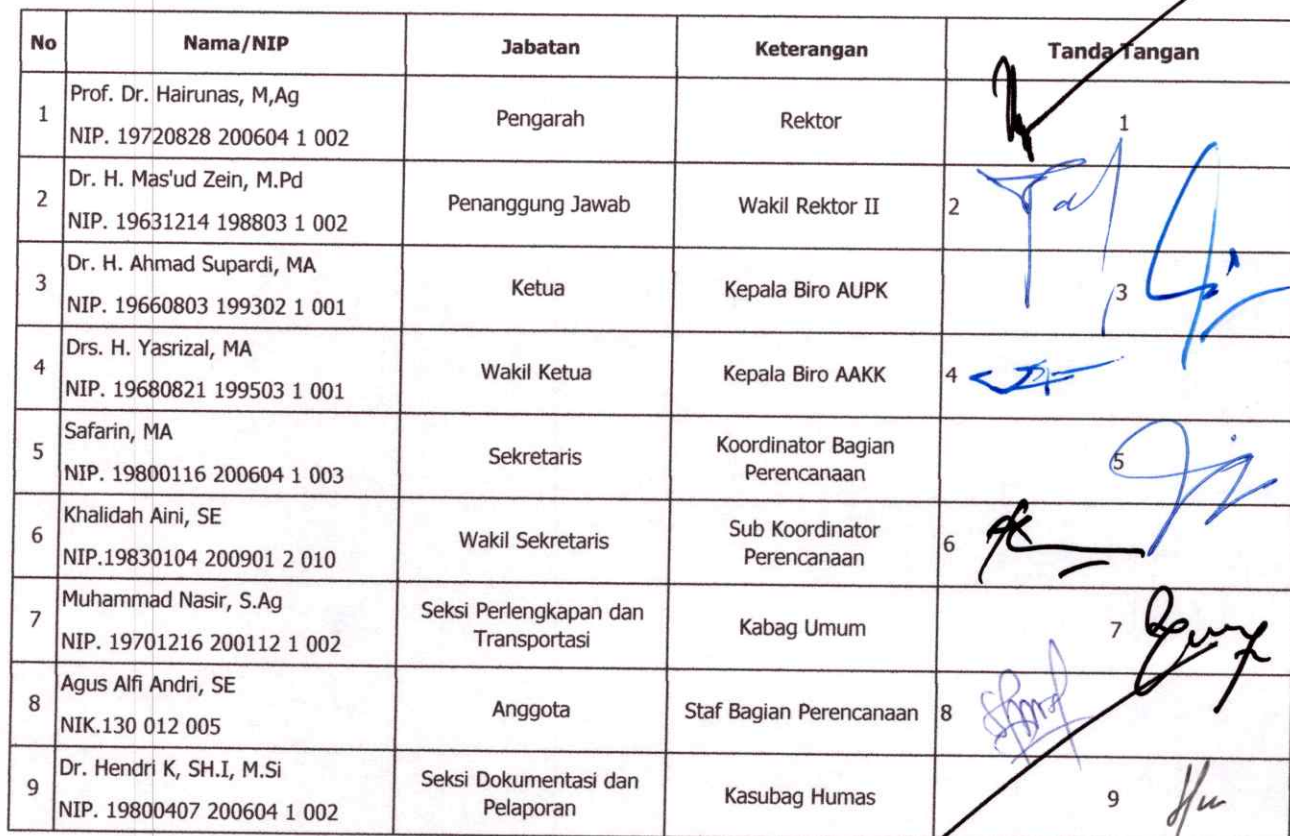 No Nama/NIP Jabatan Keterangan Tanda Tangan
1 Prof. Dr. Hairunas, M,Ag
NIP. 19720828 200604 1 002
Pengarah Rektor 1
2 Dr. H. Mas'ud Zein, M.Pd
NIP. 19631214 198803 1 002
Penanggung Jawab Wakil Rektor II 2
3 Dr. H. Ahmad Supardi, MA
NIP. 19660803 199302 1 001
Ketua Kepala Biro AUPK 3
4 Drs. H. Yasrizal, MA
NIP. 19680821 199503 1 001
Wakil Ketua Kepala Biro AAKK 4
5 Safarin, MA
NIP. 19800116 200604 1 003
Sekretaris
Koordinator Bagian
Perencanaan
5
6 Khalidah Aini, SE
NIP.19830104 200901 2 010
Wakil Sekretaris
Sub Koordinator
Perencanaan
6
7 Muhammad Nasir, S.Ag
NIP. 19701216 200112 1 002
Seksi Perlengkapan dan
Transportasi
Kabag Umum 7
8 Agus Alfi Andri, SE
NIK.130 012 005
Anggota Staf Bagian Perencanaan 8
9 Dr. Hendri K, SH.I, M.Si
NIP. 19800407 200604 1 002
Seksi Dokumentasi dan
Pelaporan
Kasubag Humas 9